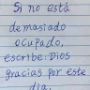 Si no está
demasiado
ocupado,
escribe: Dios
gracias por este
día.